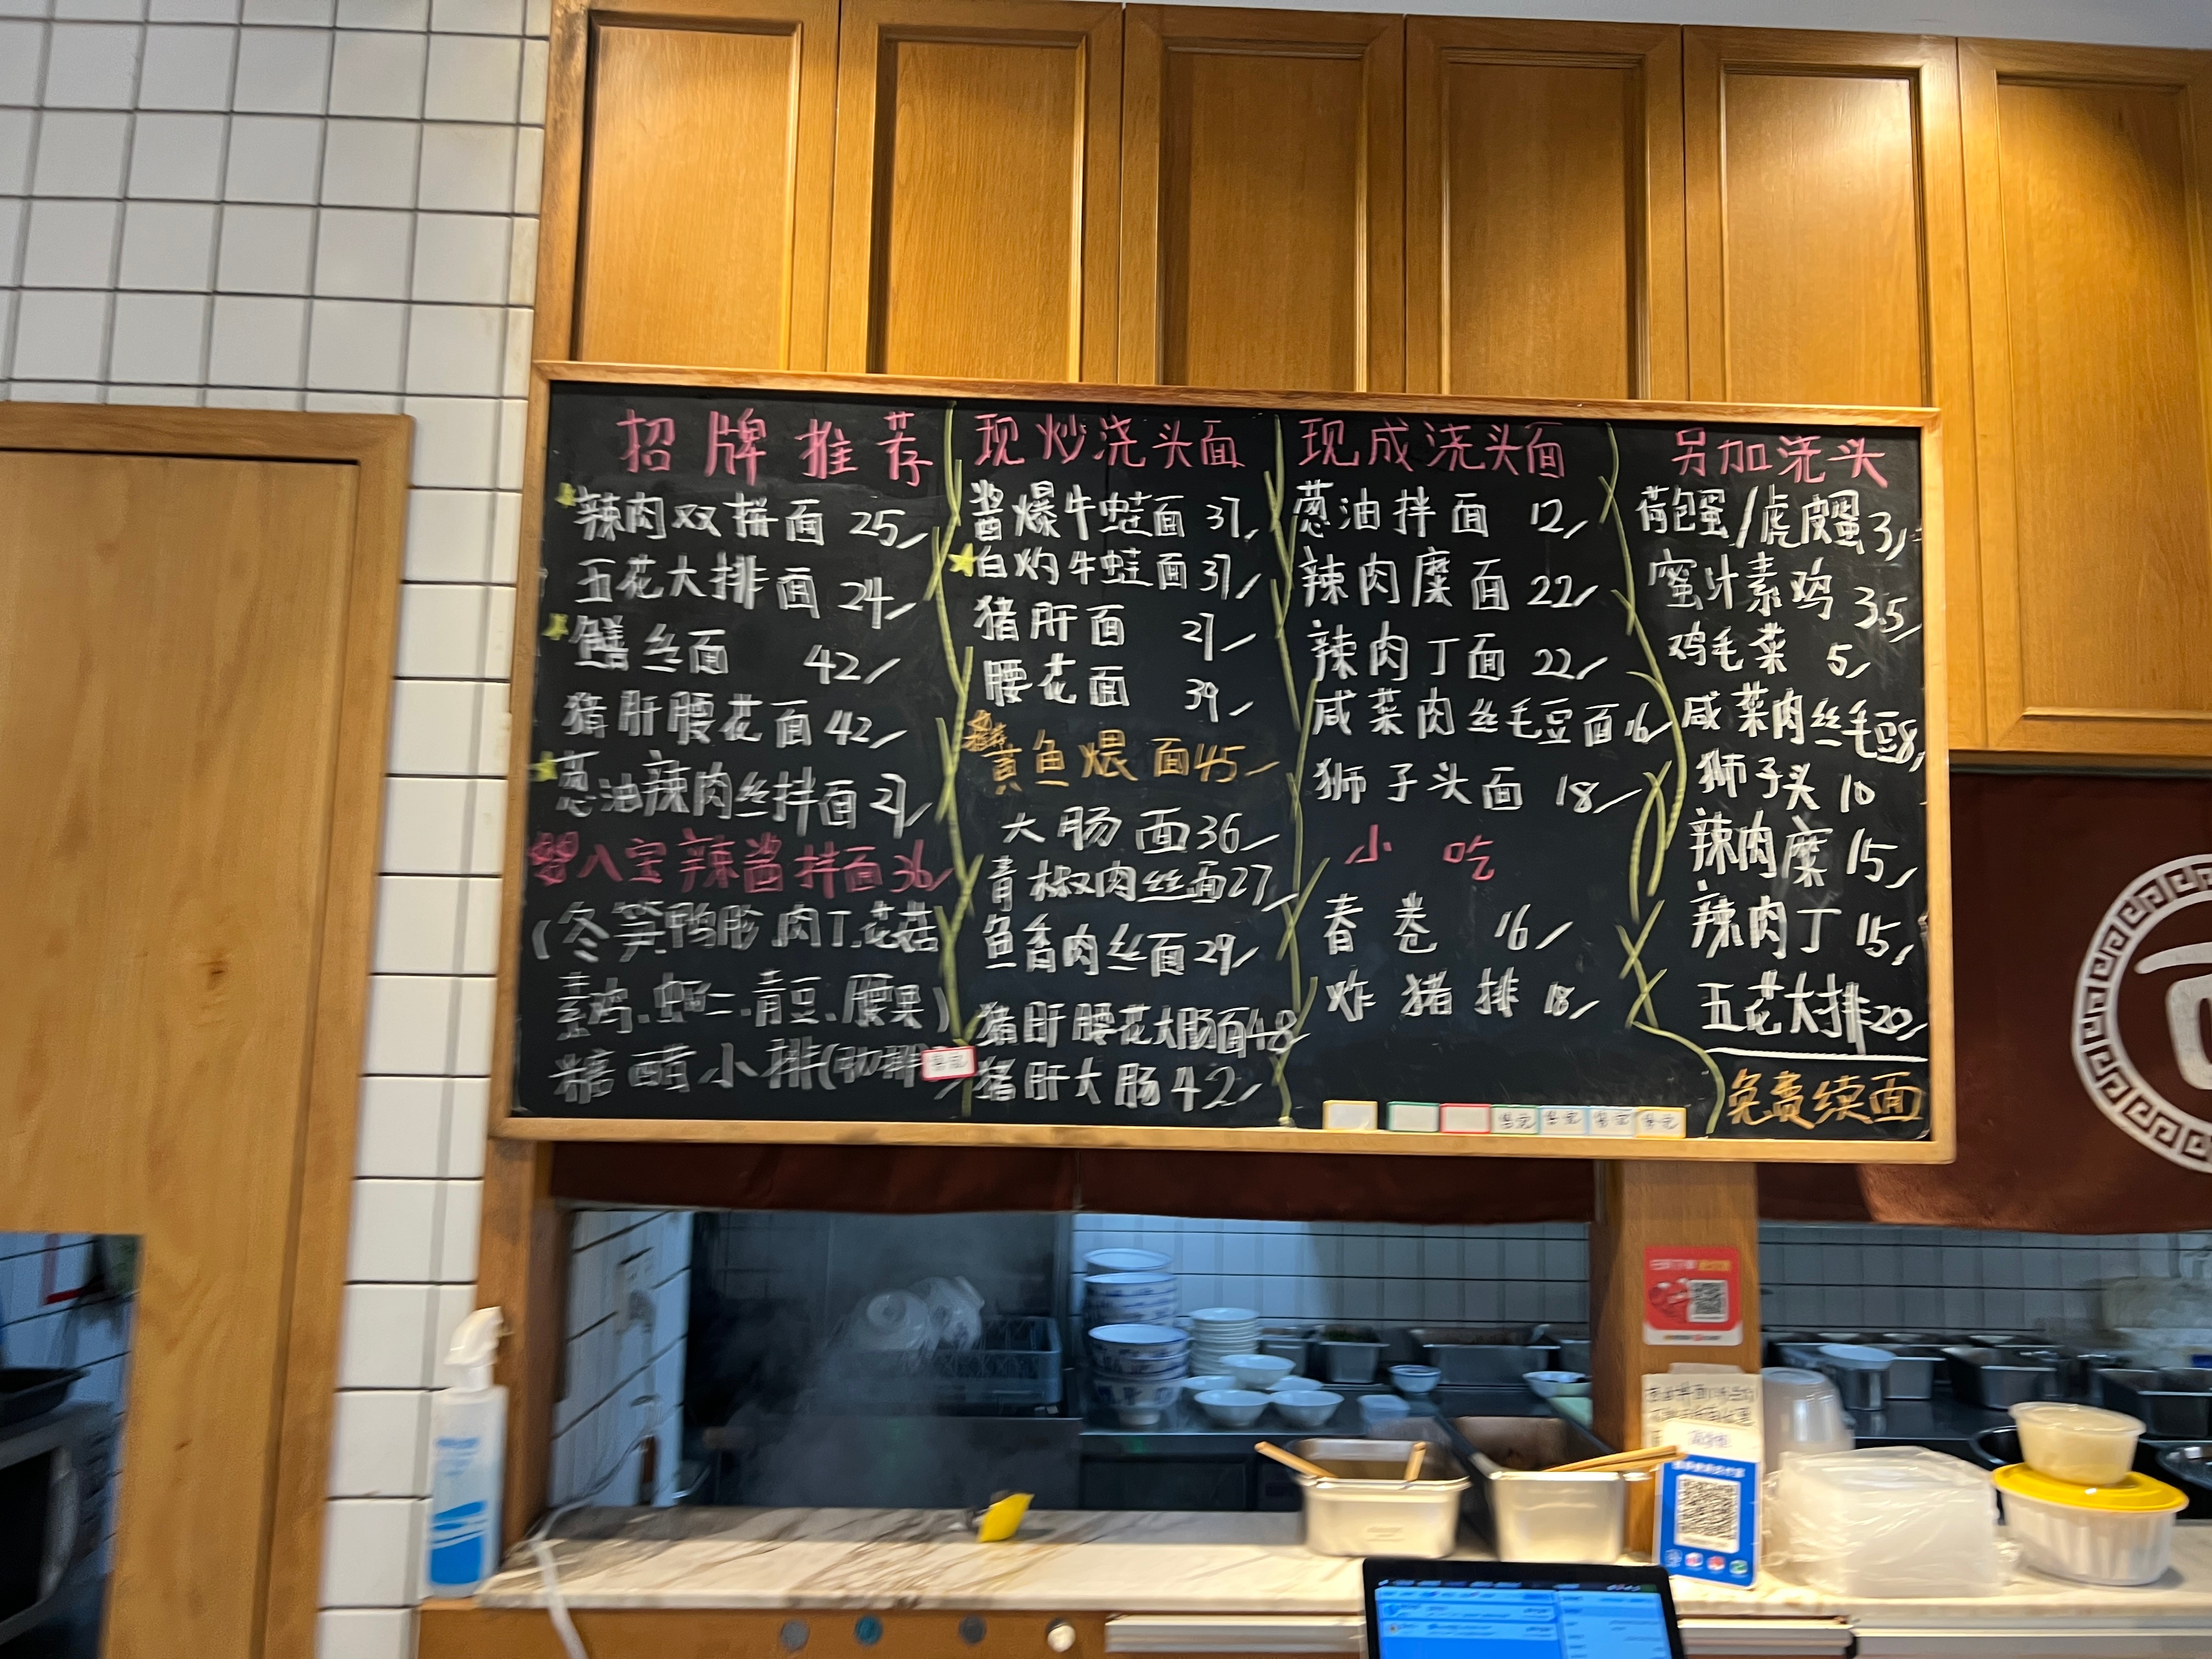 招牌推荐
辣肉双拼面 25/
五花大排面 24/
鳝丝面 42/
猪肝腰花面 42/
葱油辣肉丝拌面 27/
八宝辣酱拌面 36/
(冬笋.鸭胗.肉丁.花菇
素鸡.虾仁.青豆.腰果)
糖醋小排(肋排)
售完
现炒浇头面
酱爆牛蛙面 37/
白灼牛蛙面 37/
猪肝面 27/
腰花面 39/
黄鱼煨面 45/
大肠面 36/
青椒肉丝面 27/
鱼香肉丝面 29/
猪肝腰花大肠面 48/
猪肝大肠 42/
现成浇头面
葱油拌面 12/
辣肉糜面 22/
辣肉丁面 22/
咸菜肉丝毛豆面 16/
狮子头面 18/
小吃
春卷 16/
炸猪排 18/
售完 售完 售完 售完
另加浇头
荷包蛋/虎皮蛋 3/
蜜汁素鸡 3.5/
鸡毛菜 5/
咸菜肉丝毛豆 8/
狮子头 10
辣肉糜 15/
辣肉丁 15/
五花大排 20/
免费续面